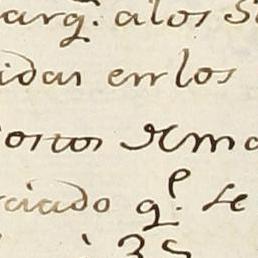 arq.^e a los S
idas en los
ostos
ciado q.^e se
35